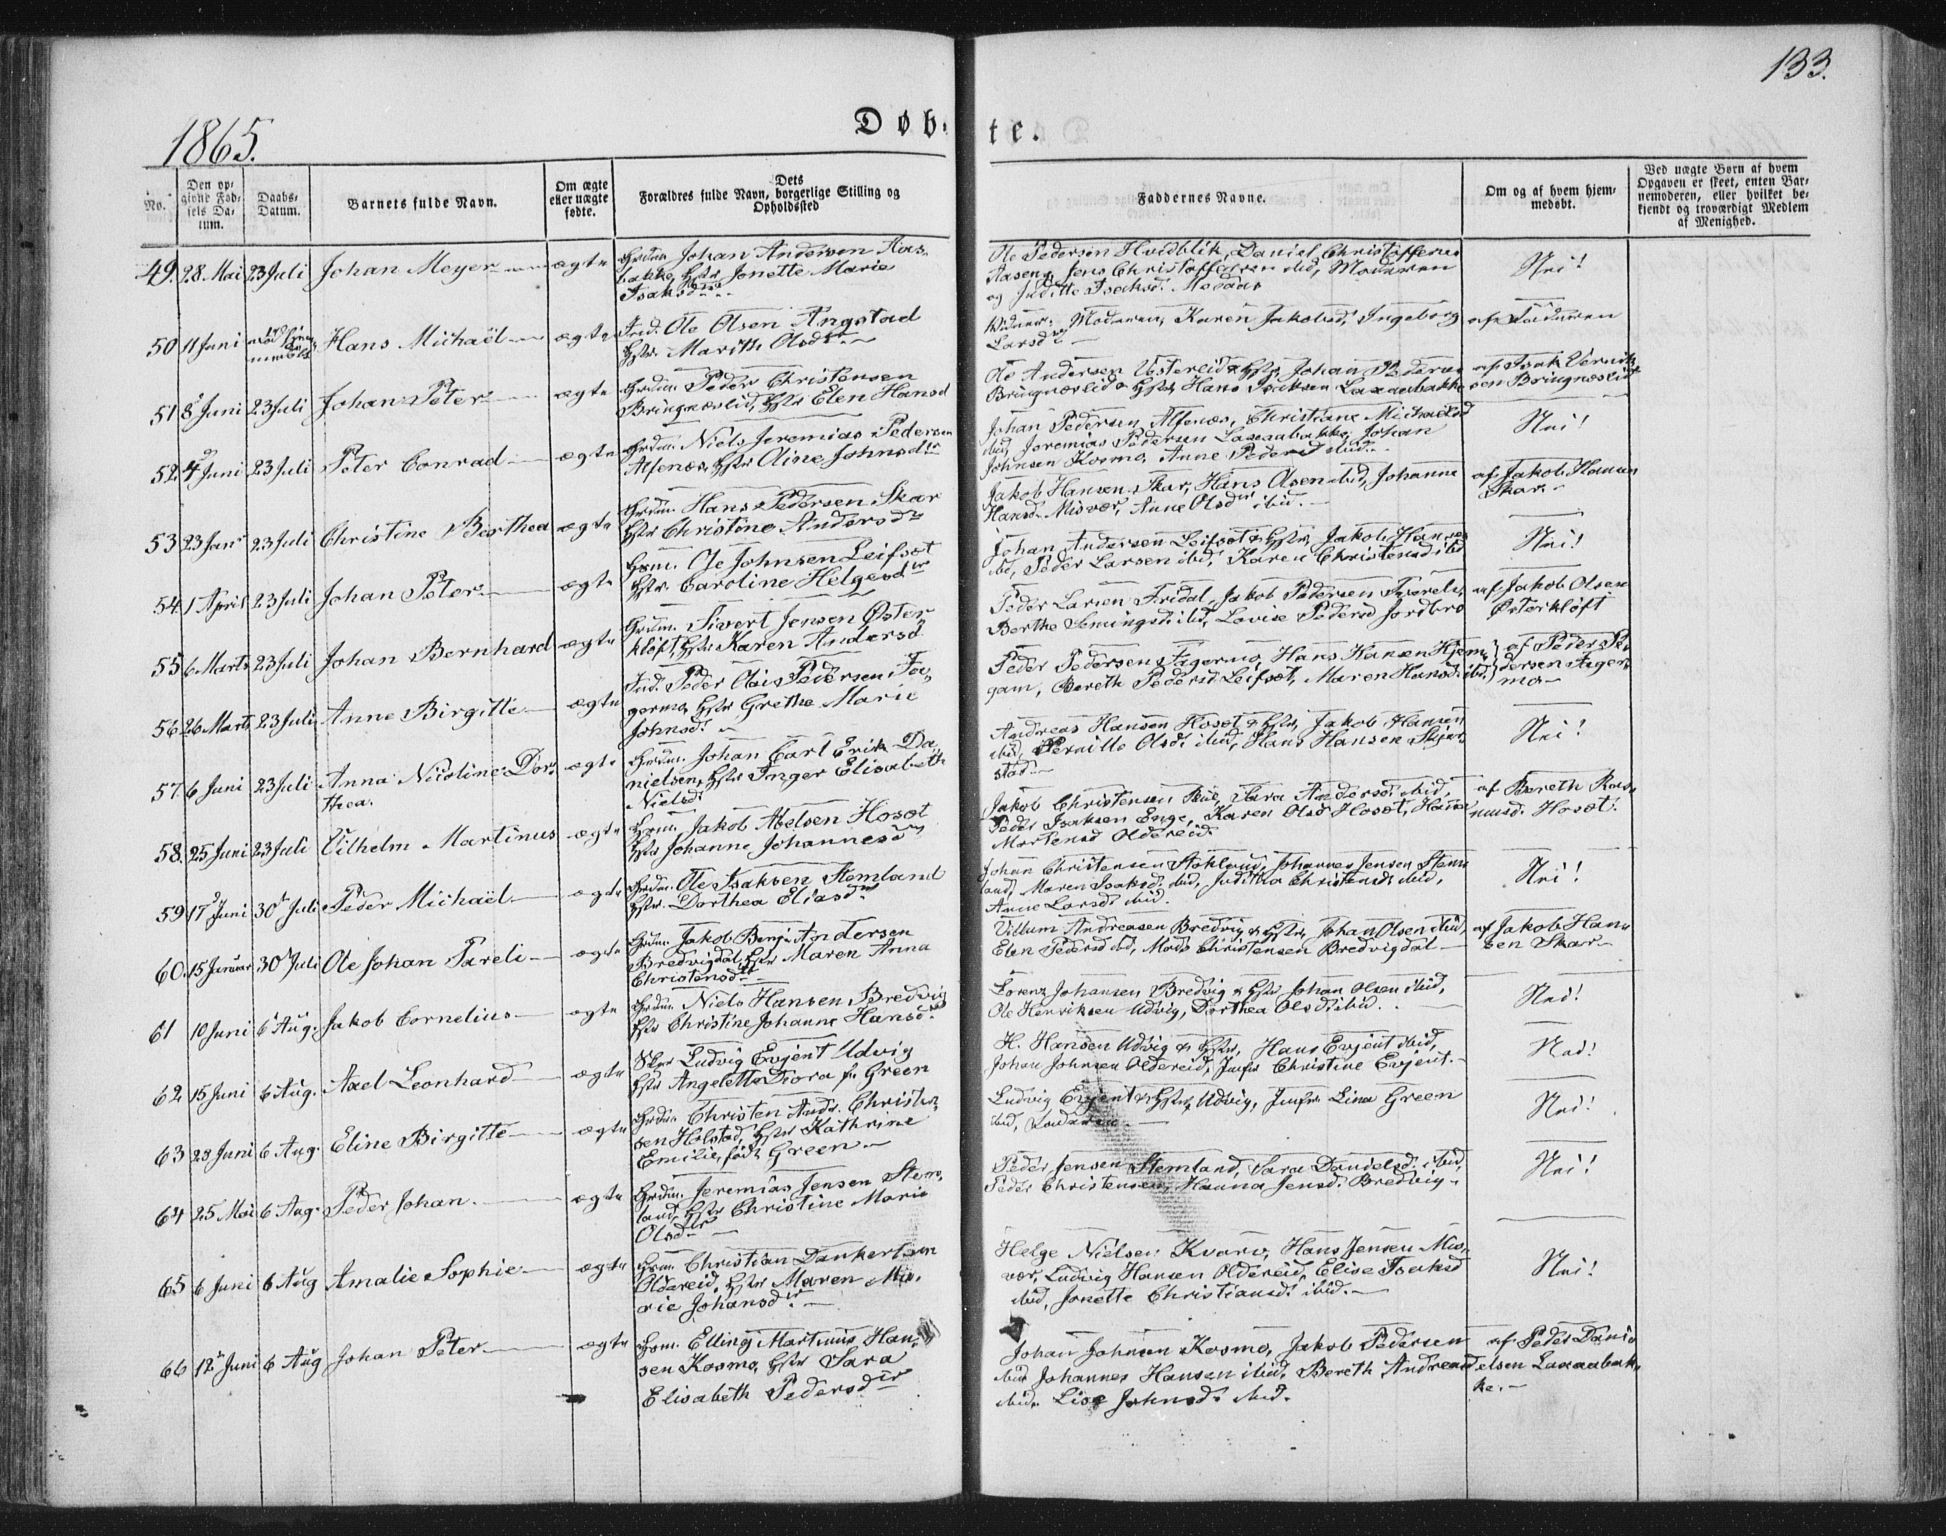 133.
1865.
Døb- te.
No.
Den op-
givne Fød-
sels Da-
tum.
Daabs-
Datum.
Barnets fulde Navn.
Om ægte
eller uægte
fødte.
Dets
Forældres fulde Navn, borgerlige Stilling og
Opholdssted
Faddernes Navne.
Om og af hvem hjem-
medøbt.
Ved uægte Børn af hvem
Opgaven er skeet, enten Bar-
nemoderen, eller hvilket be-
kjendt og troværdigt Medlem
af Menighed.
49. 28. Mai 23 Juli Johan Meyer ægte
Johan Andersen Aas-
bakke, Hstr Jonette Marie
Isaksd
Ole Pedersen Hvidblik, Daniel Christoffersen
Aaseng, Jens Christoffersen ibid, Moderen
og Juditte Isaksd.
Nei!
50 11 Juni Hans Michaël ægte
Ind. Ole Olsen Angstad
Hstr. Marith Olsdtr
Moderen, Karen Jakobsd, Ingeborg
Larsdtr
af Faderen
51 8 Juni 23 Juli Johan Peter ægte
Grdm. Peder Christensen
Bringneslid, Hstr Elen Hansd
Ole Andersen Østereid & Hstr, Johan Pedersen
Bringneslid & Hstr, Hans Isaksen Laxaabakke
af Isak
sen Bringneslid
52. 4 Juni 23 Juli Peter Conrad ægte
Grdm. Niels Jeremias Pedersen
Alfenes, Hstr Oline Johnsdtr
Johan Pedersen Alfenes, Christiane Michaelsd
ibid, Jeremias Pedersen Laxaabakke, Johan
Johnsen Kosmo, Anne Pedersd ibid.
Nei!
53 23 Jan 23 Juli Christine Berthea ægte
Grdm. Hans Pedersen Skar
Hstr Christine Andersdtr
Jakob Hansen Skar, Hans Olsen ibid, Johanne
Hansd. Misvær, Anne Olsdtr ibid.
af Jakob Hansen
Skar
54 1 April 23 Juli Johan Peter ægte
Hsm. Ole Johnsen Leifset
Hstr Caroline Helgesdtr
Johan Andersen Leifset & Hstr, Jakob Hansen
ibid, Peder Larsen ibid, Karen Christensd ibid
Nei!
55 6 Marts 23 Juli Johan Bernhard ægte
Grdm. Sivert Jensen Øster-
kløft, Hstr Karen Andersd
Peder Larsen Fridal, Jakob Pedersen
Berthe ibid, Lovise Pedersd Jordbro
af Jakob Olsen
Østerkløft
56 26 Marts 23 Juli Anne Birgitte ægte
Ind. Peder Olais Pedersen Fa-
germo, Hstr Grethe Marie
Johnsd.
Peder Pedersen Fagermo, Hans Hansen Hjem-
gam, Bereth Pedersd Leifset, Maren Hansd. ibid.
af Peder Pe-
dersen Fager-
mo
57 6 Juni 23 Juli Anna Nicoline Dor-
thea. ægte
Grdm. Johan Carl Erik Da-
nielsen, Hstr Inger Elisabeth
Nielsd.
Andreas Hansen Hoset & Hstr, Jakob Hansen
ibid, Pernille Olsd. ibid, Hans Hansen Skjev-
stad
Nei!
58. 25 Juni 23 Juli Vilhelm Martinus ægte
Hsm. Jakob Abelsen Hoset
Hstr Johanne Johannesd
Jakob Christensen Rue, Sara Andersd. ibid,
Peder Isaksen Enge, Karen Olsd Hoset, Hanna
Mortensd Oldereid.
af Bereth Ras-
musd. Hoset.
59 17 Juni 30 Juli Peder Michaël ægte
Grdm. Ole Isaksen Stemland
Hstr. Dorthea Eliasd
Johan Christensen Stokland, Johannes Jensen Stem-
land, Maren Isaksd. ibid, Juditha Christensd. ibid,
Anne Larsd. ibid.
Nei!
60. 15 Januar 30 Juli Ole Johan Pareli ægte
Grdm. Jakob Benj. Andersen
Bredvigdal, Hstr Maren Anna
Christensd
Villum Andreasen Bredvig & Hstr, Johan Olsen ibid,
Elen Pedersd ibid, Mads Christensen Bredvigdal
af Jakob Han-
sen Skar
61 10 Juni 6 Aug. Jakob Cornelius ægte
Grdm. Niels Hansen Bredvig
Hstr Christine Johanne Hansd.
Lorenz Johansen Bredvig & Hstr, Johan Olsen ibid,
Ole Henriksen Udvig, Dorthea Olsd. ibid.
Nei!
62 15 Juni 6 Aug. Axel Leonhard ægte
Ludvig Evjent Udvig
Hstr Angeletta Dora f. Green
H. Hansen Udvig & Hstr, Hans Evjent ibid,
Johan Johnsen Oldereid, Jmfr Christine Evjent.
Nei!
63 29 Juni 6 Aug. Eline Birgitte ægte
Grdm. Christen Andr. Christen-
sen Helstad, Hstr Kathrine
Emilie, født Green
Ludvig Evjent & Hstr, Udvig, Jmfr. Lina Green
ibid, Faderen.
Nei!
64 25 Mai 6 Aug. Peder Johan. ægte
Grdm. Jeremias Jensen Stem-
land, Hstr Christine Marie
Olsdtr
Peder Jensen Stemland, Sara Danielsd. ibid,
Peder Christensen, Hanna Jensd. Bredvig
Nei!
65 6 Juni 6 Aug Amalie Sophie ægte
Hsm. Christian Dankertsen
Oldereid, Hstr Maren Ma-
rie Johansdtr.
Helge Nielsen Kvarv, Hans Jensen Mis-
vær, Ludvig Hansen Oldereid, Elise Isaksd
ibid, Jonette Christiansd. ibid.
Nei!
66 12 Juni 6 Aug Johan Peter ægte
Hsm. Elling Martinus Han-
sen Kosmo, Hstr Sara
Elisabeth Pedersdtr
Johan Johnsen Kosmo, Jakob Pedersen
ibid Johannes Hansen ibid. Bereth Andreasd
ibid. Lise Johnsd. ibid.
af Peder Dani-
elsen Laxaabak-
ke.